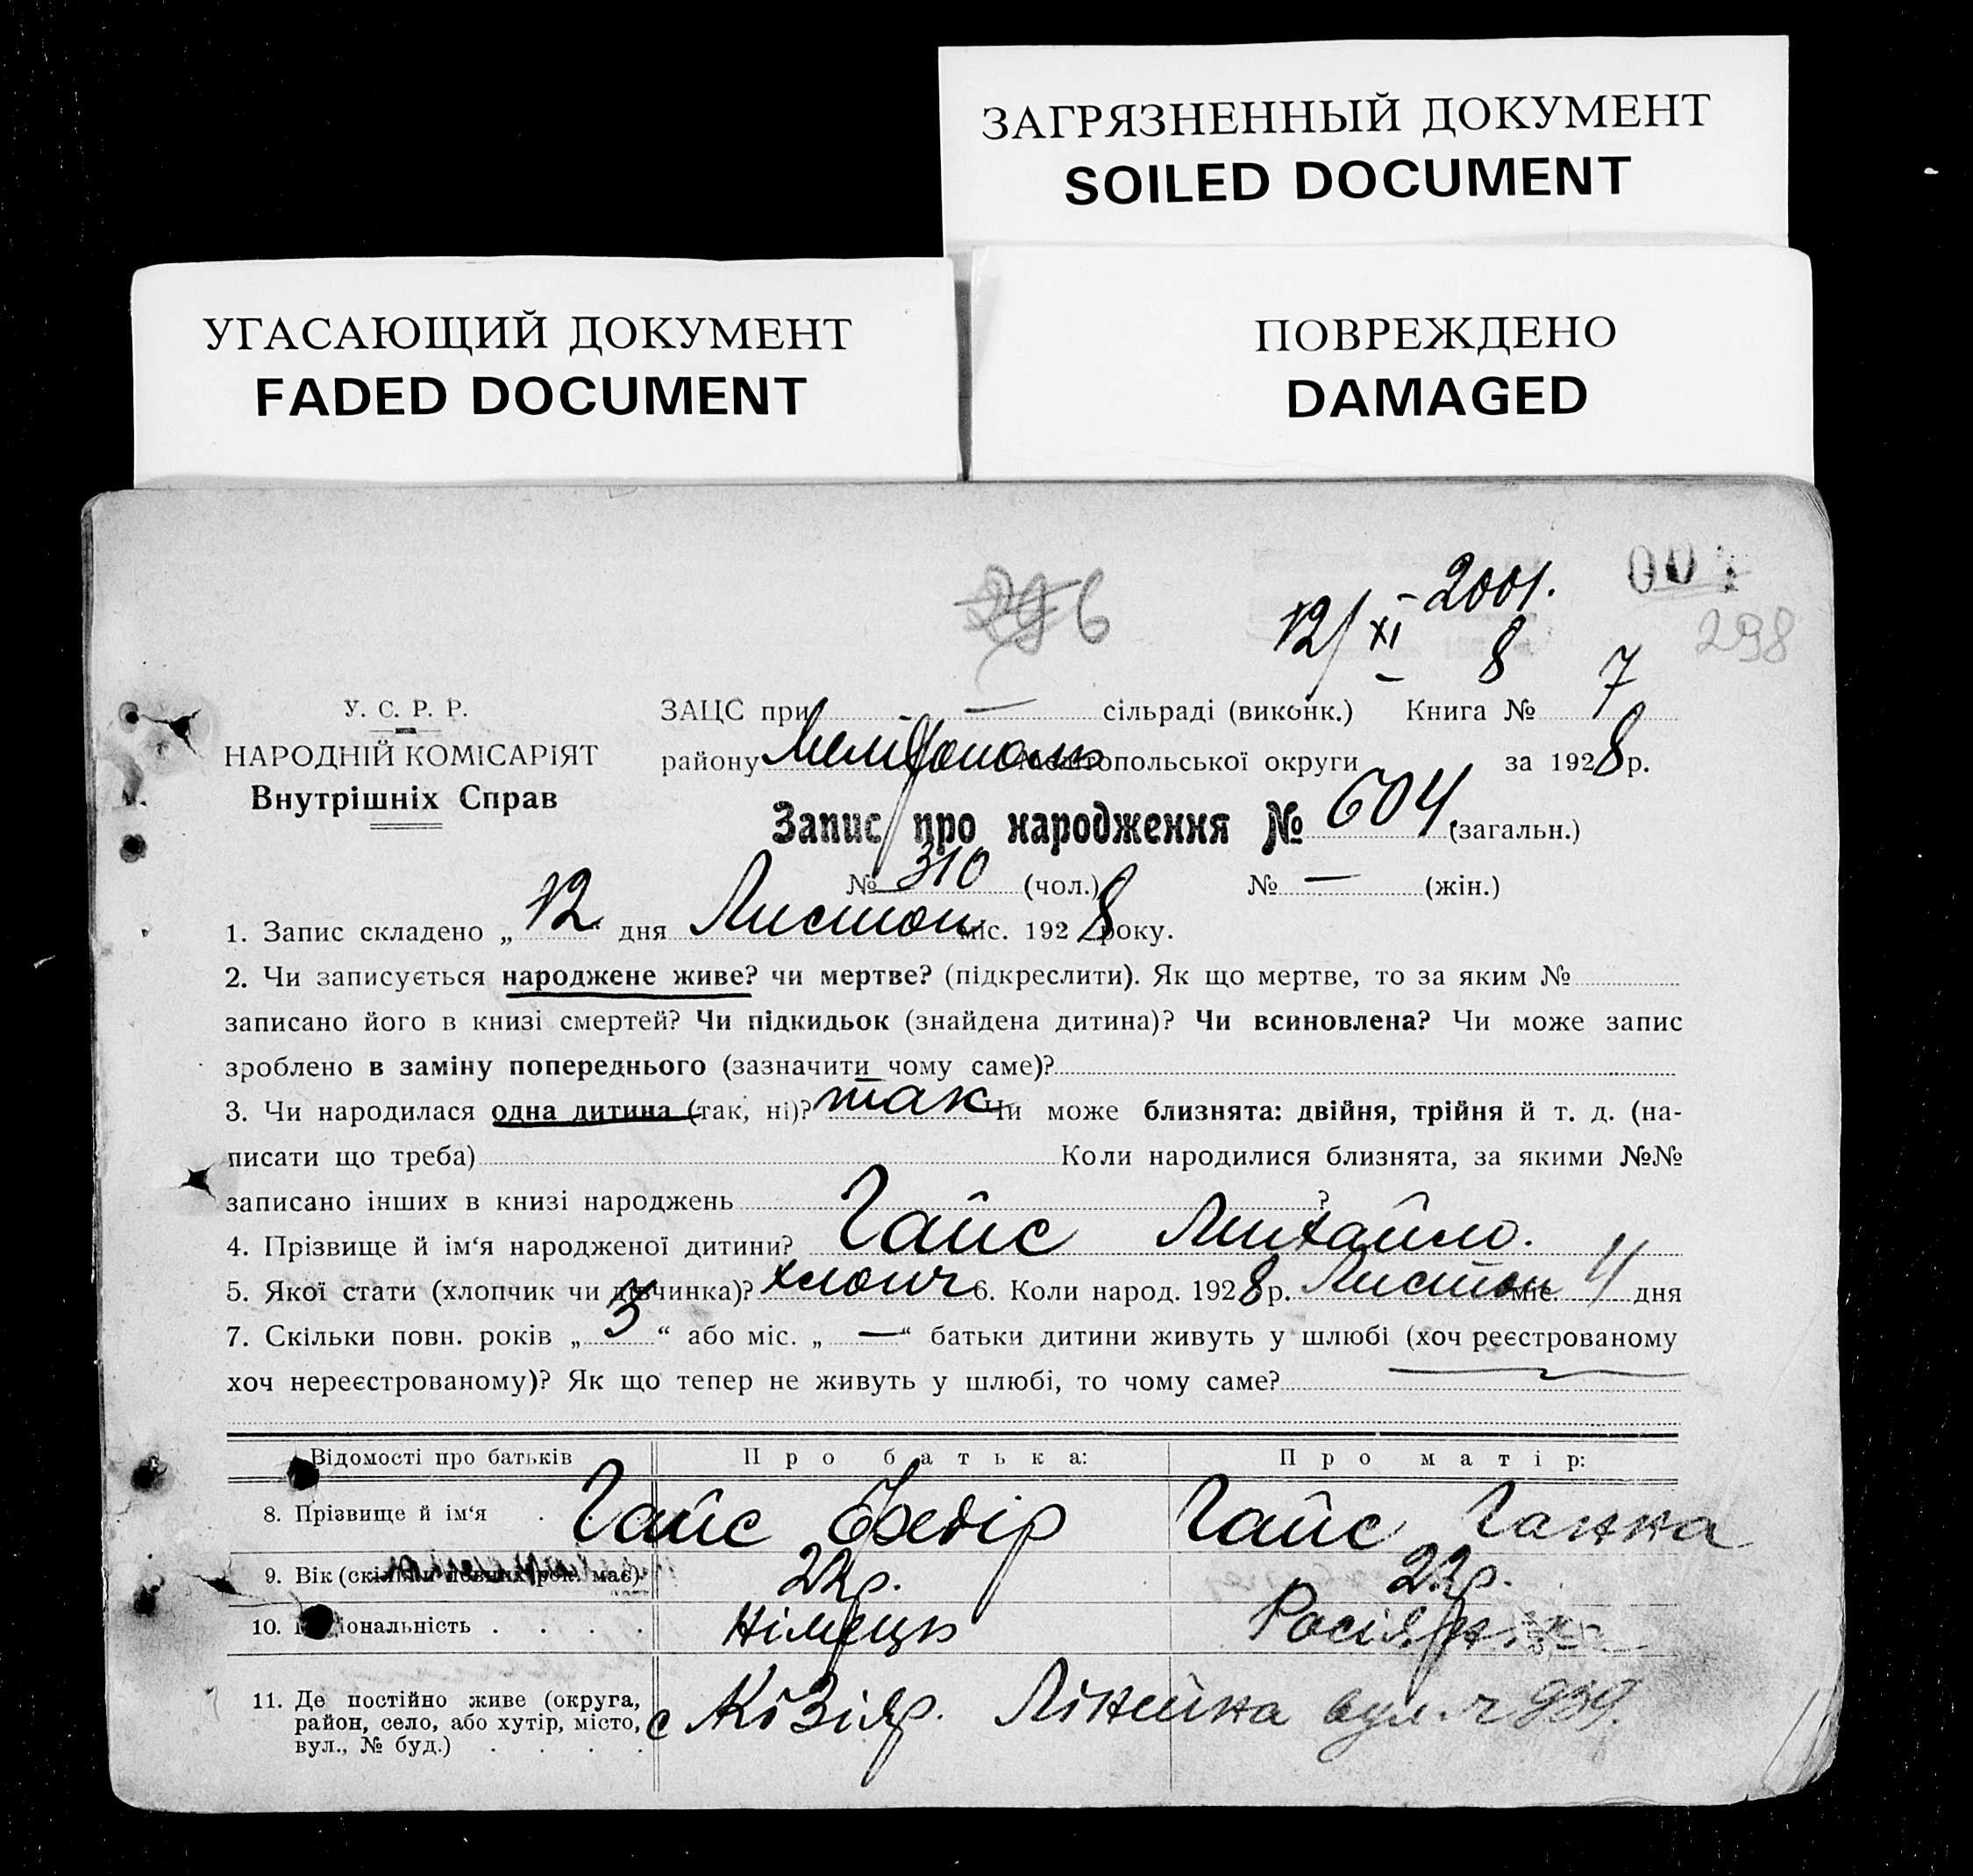 ЗАГРЯЗНЕННЫЙ ДОКУМЕНТ
SOILED DOCUMENT
УГАСАЮЩИЙ ДОКУМЕНТ
FADED DOCUMENT
ПОВРЕЖДЕНО
DAMAGED
296
12/XI - 2001.
8
298
У. С. Р. Р.
НАРОДНІЙ КОМІСАРІЯТ
Внутрішніх Справ
ЗАЦС при — сільраді (виконк.) Книга № 7
району Мелітополь Мелітопольської округи за 1928 р.
Запис про народження № 604 (загальн.)
№ 310 (чол.) № — (жін.)
1. Запис складено „ 12 дня Листоп міс. 1928 року.
2. Чи записується народжене живе? чи мертве? (підкреслити). Як що мертве, то за яким №
записано його в книзі смертей? Чи підкидьок (знайдена дитина)? Чи всиновлена? Чи може запис
зроблено в заміну попереднього (зазначити чому саме)?
3. Чи народилася одна дитина (так, ні)? так Чи може близнята: двійня, трійня й т. д. (на-
писати що треба) Коли народилися близнята, за якими №№
записано інших в книзі народжень ?
4. Прізвище й ім‘я народженої дитини? Гайс Михайло.
5. Якої стати (хлопчик чи дівчинка)? хлопч 6. Коли народ. 1928 р. Листоп міс. 4 дня
7. Скільки повн. років „ 3 “ або міс. „ — “ батьки дитини живуть у шлюбі (хоч реєстрованому
хоч нереєстрованому)? Як що тепер не живуть у шлюбі, то чому саме?
Відомості про батьків Про батька: Про матір:
8. Прізвище й ім‘я . Гайс Федір Гайс Ганна
9. Вік (скільки повних рок. має) 22 р. 22 р.
10. Національність . . . . Німець Росіянка
11. Де постійно живе (округа,
район, село, або хутір, місто, Лінейна вул. ч 939.
вул., № буд.) . . . .